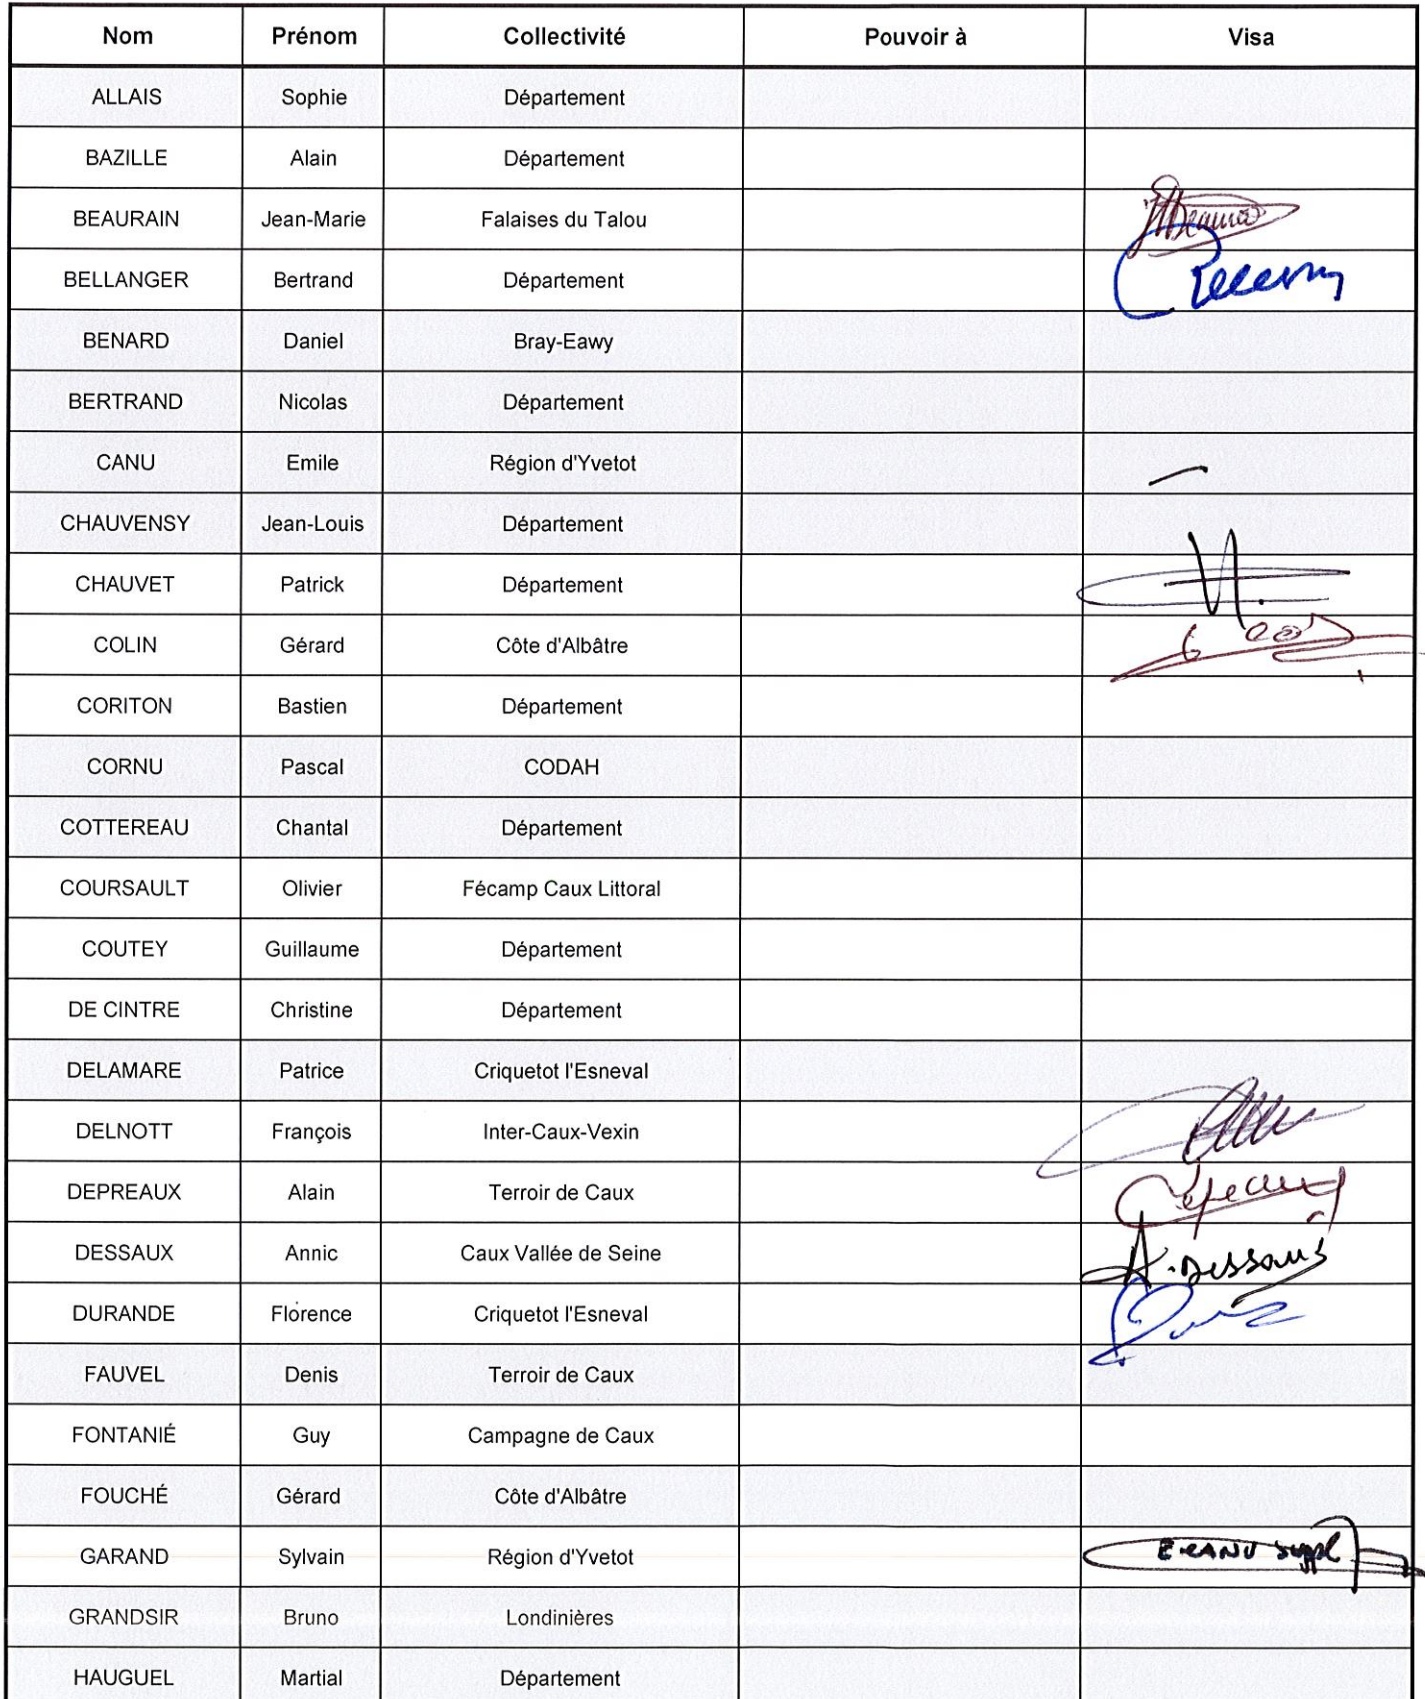 Nom Prénom Collectivité Pouvoir à Visa
ALLAIS Sophie Département
BAZILLE Alain Département
BEAURAIN Jean-Marie Falaises du Talou
BELLANGER Bertrand Département
BENARD Daniel Bray-Eawy
BERTRAND Nicolas Département
CANU Emile Région d'Yvetot
CHAUVENSY Jean-Louis Département
CHAUVET Patrick Département
COLIN Gérard Côte d'Albâtre
CORITON Bastien Département
CORNU Pascal CODAH
COTTEREAU Chantal Département
COURSAULT Olivier Fécamp Caux Littoral
COUTEY Guillaume Département
DE CINTRE Christine Département
DELAMARE Patrice Criquetot l'Esneval
DELNOTT François Inter-Caux-Vexin
DEPREAUX Alain Terroir de Caux
DESSAUX Annic Caux Vallée de Seine A. Dessaux
DURANDE Florence Criquetot l'Esneval
FAUVEL Denis Terroir de Caux
FONTANIÉ Guy Campagne de Caux
FOUCHÉ Gérard Côte d'Albâtre
GARAND Sylvain Région d'Yvetot E.CANU suppl
GRANDSIR Bruno Londinières
HAUGUEL Martial Département